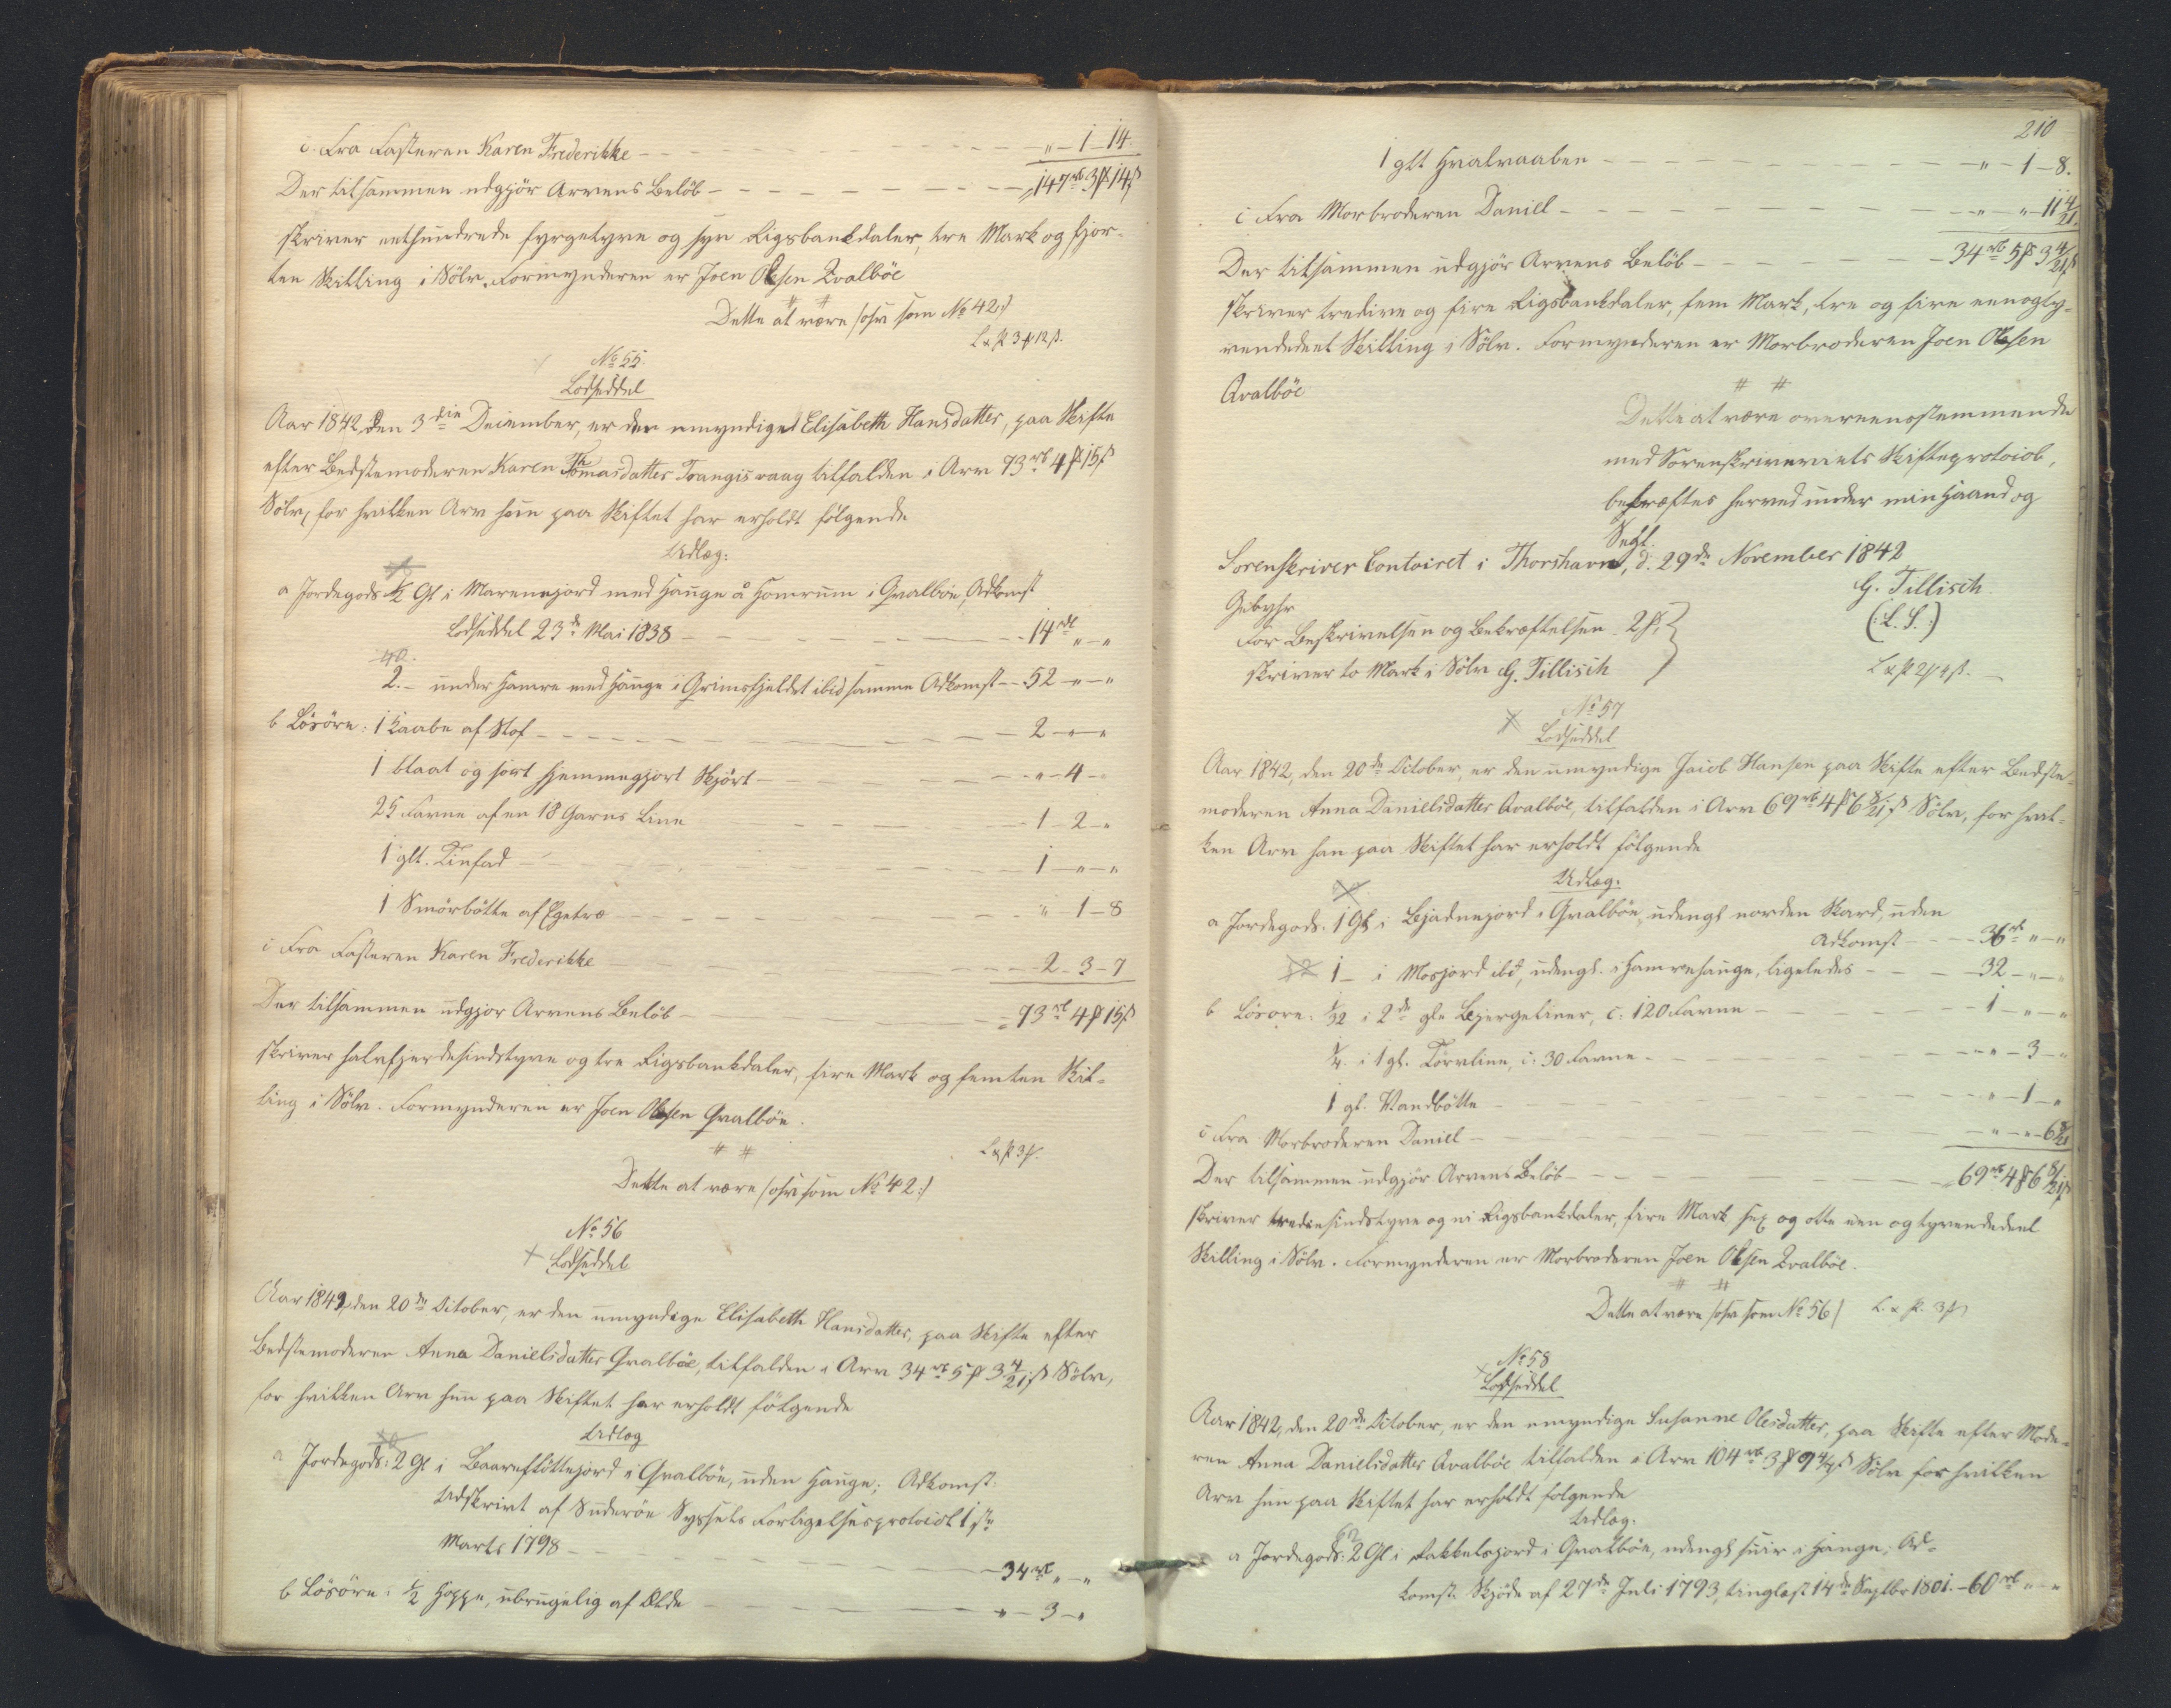 c. Fra Fasteren Karen Frederikke — " — 1 — 14.
Der tilsammen udgjör Arvens Beløb — 147 rb 3 ₰ 14 ß
skriver eethundrede fyrgetyve og syv Rigsbankdaler, tre Mark og fjor-
ten Skilling i Sölv. Formynderen er Joen Olesen Qvalböe
Dette at være /: osv som No 42 :/
L & R 3 ₰ 12 ß.
No 55.
Lodseddel
Aar 1842, den 3die December, er den umyndiges Elisabeth Hansdatter, paa Skifte
efter Bedstemoderen Karen Thomasdatter Trangisvaag tilfalden i Arv 73 rb 4 ₰ 15 ß
Sölv, for hvilken Arv hun paa Skiftet har erholdt fölgende
Udlæg:
a Jordegods ½ Gl i Marenejord med Hauge å Homrum i Qvalböe, Adkomst
Lodseddel 23de Mai 1838 — 14 rb " — "
40.
2. — under Hamre med Hauge i Grimsfjeldet ibid samme Adkomst — 52 — " — "
b Lösöre: 1 Kaabe af Stof — 2 — " — "
1 blaat og sort hjemmegjort Skjört — " — 4 — "
25 Favne af en 18 Garns Line — 1 — 2 — "
1 glt. Tinfad — 1 — " — "
1 Smörbötte af Egetræ — " — 1 — 8
c Fra Fasteren Karen Frederikke — 2 — 3 — 7
Der tilsammen udgjör Arvens Belöb — 73 rb 4 ₰ 15 ß
skriver halvfjerdesindstyve og tre Rigsbankdaler, fire Mark og femten Skil-
ling i Sölv. Formynderen er Joen Olesen Qvalböe.
L & R 3 ₰.
Dette at være /: osv som No 42 :/
No 56
Lodseddel
Aar 1842, den 20de October, er den umyndige Elisabeth Hansdatter, paa Skifte efter
Bedstemoderen Anna Danielsdatter Qvalböe, tilfalden i Arv 34 rb 5 ₰ 3 4/21 ß Sölv,
for hvilken Arv hun paa Skiftet har erholdt fölgende
Udlæg
a Jordegods: 2 Gl i Baarefløttejord i Qvalböe, uden Hauge; Adkomst
Udskrivt af Suderöe Syssels Forligelsesprotocol 1ste
Marts 1798 — 34 rb " — "
b Lösöre: ½ Hoppe, ubrugelig af Ælde — " — 3 — "
210
1 glt Hvalvaaben — " — 1 — 8.
c Fra Morbroderen Daniel — " — " — 11 4/21.
Der tilsammen udgjör Arvens Belöb — 34 rb 5 ₰ 3 4/21 ß
skriver tredive og fire Rigsbankdaler, fem Mark, tre og fire eenogty-
vendedeel Skilling i Sölv. Formynderen er Morbroderen Joen Olesen
Qvalböe
Dette at være overeensstemmende
med Sorenskriveriets Skifteprotocol,
bekræftes herved under min Haand og
Segl.
Sorenskriver Contoiret i Thorshavn, d. 29de November 1842
G. Tillisch
(: L. S. :)
Gebyhr
For Beskrivelsen og Bekræftelsen 2 ₰,
skriver to Mark i Sölv G. Tillisch
L & R 2 ₰ 4 ß.
No 57
Lodseddel
Aar 1842, den 20de October, er den umyndige Jacob Hansen paa Skifte efter Bedste-
moderen Anna Danielsdatter Qvalböe, tilfalden i Arv 69 rb 4 ₰ 6 8/21 ß Sölv, for hvil-
ken Arv han paa Skiftet har erholdt fölgende
Udlæg:
a Jordegods: 1 Gl i Bjadnejord i Qvalböe, udengl norden Skard, uden
Adkomst — 36 rb " — "
1 — i Mosjord ibd, udengl. i Hamrehauge, ligeledes — 32 — " — "
b Lösöre: 1/32 i 2de gle Bjergeliner, c: 120 Favne — 1 — " — "
¼ i 1 gl. Törvline, c: 30 Favne — " — 3 — "
1 gl. Vandbötte — " — 1 — "
c Fra Morbroderen Daniel — " — " — 6 8/21
Der tilsammen udgjör Arvens Belöb — 69 rb 4 ₰ 6 8/21 ß
skriver tredsindstyve og ni Rigsbankdaler, fire Mark, sex og otte een og tyvendedeel
Skilling i Sölv. Formynderen er Morbroderen Joen Olesen Qvalböe.
Dette at være /: osv som No 56 :/ L. & R. 3 ₰
No 58
Lodseddel
Aar 1842, den 20de October, er den umyndige Susanne Olesdatter, paa Skifte efter Mode-
ren Anna Danielsdatter Qvalböe tilfalden i Arv 104 rb 3 ₰ 9 4/7 ß Sölv for hvilken
Arv hun paa Skiftet har erholdt fölgende
Udlæg:
a Jordegods: 2 Gl i Fakkelsjord i Qvalböe, udengl i Hauge; Ad-
komst. Skjöde af 27de Juli 1793, tinglæst 14de Septbr 1801. — 60 rb " — "